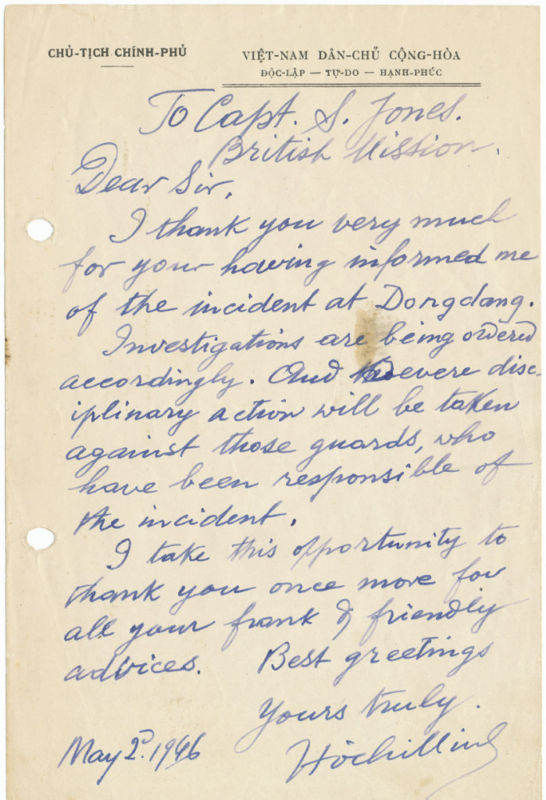 CHỦ-TỊCH CHÍNH-PHỦ
VIỆT-NAM DÂN-CHỦ CỘNG-HÒA
ĐỘC-LẬP — TỰ-DO — HẠNH-PHÚC
To Capt. S. Jones.
British Mission.
Dear Sir,
I thank you very much
for your having informed me
of the incident at Dongdang.
Investigations are being ordered
accordingly. And severe disc
iplinary action will be taken
against those guards, who
have been responsible of
the incident.
I take this opportunity to
thank you once more for
all your frank & friendly
advices. Best greetings
Yours truly.
May 2d. 1946
Hochiminh